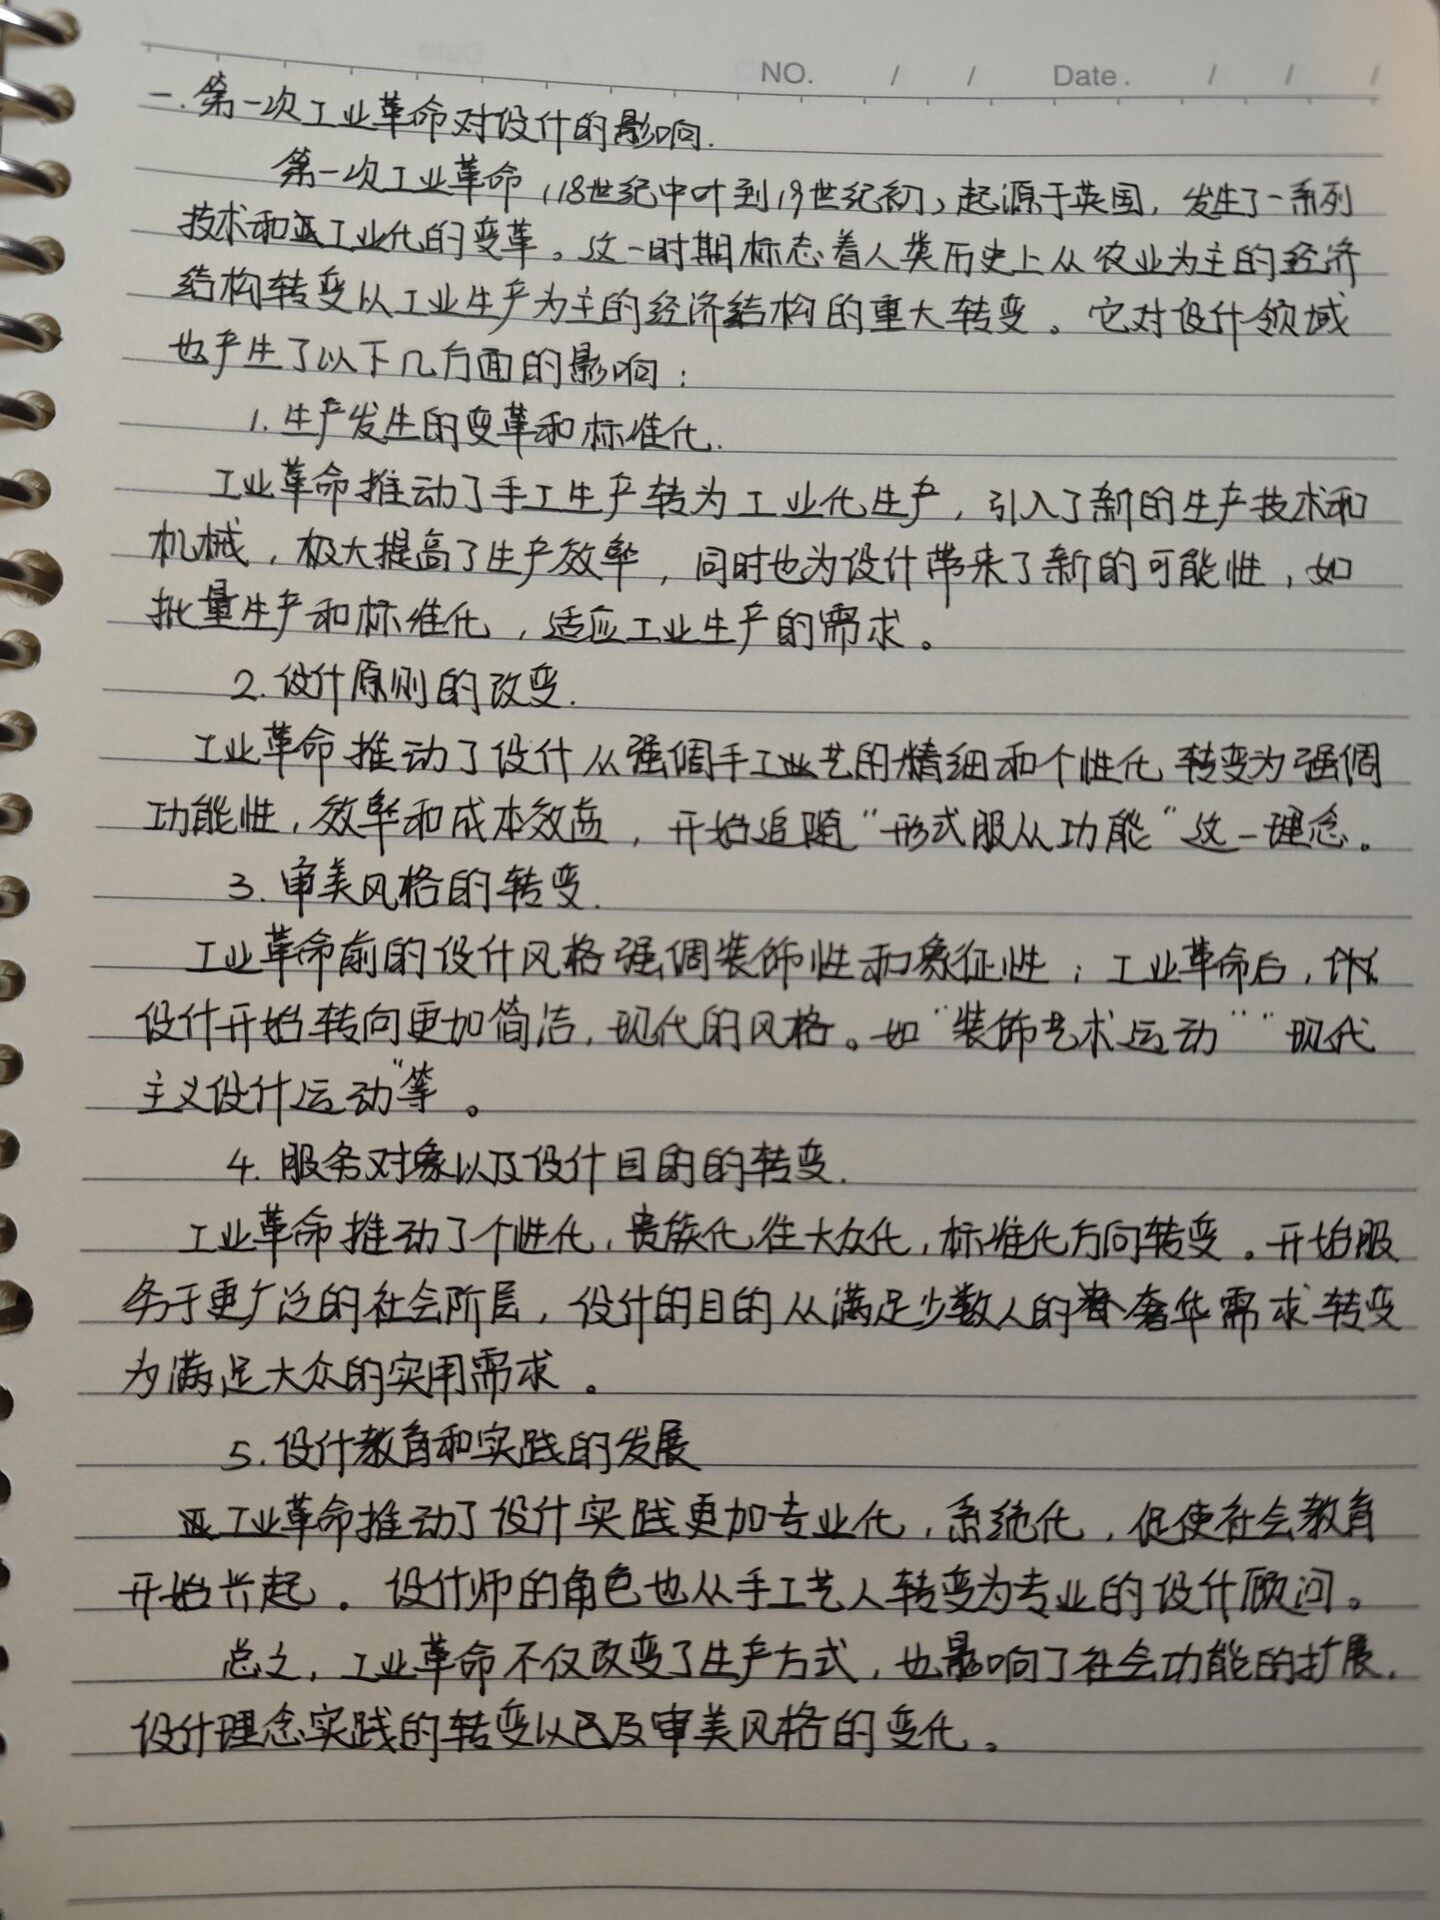 NO. / / Date. / / /
一.第一次工业革命对设计的影响.
第一次工业革命(18世纪中叶到19世纪初)起源于英国,发生了一系列
技术和工业化的变革。这一时期标志着人类历史上从农业为主的经济
结构转变以工业生产为主的经济结构的重大转变。它对设计领域
也产生了以下几方面的影响:
1.生产发生的变革和标准化.
工业革命推动了手工生产转为工业化生产,引入了新的生产技术和
机械,极大提高了生产效率,同时也为设计带来了新的可能性,如
批量生产和标准化,适应工业生产的需求。
2.设计原则的改变.
工业革命推动了设计从强调手工业艺的精细和个性化转变为强调
功能性,效率和成本效益,开始追随“形式服从功能”这一理念。
3.审美风格的转变.
工业革命前的设计风格强调装饰性和象征性;工业革命后,
设计开始转向更加简洁,现代的风格。如“装饰艺术运动”“现代
主义设计运动”等。
4.服务对象以及设计目的的转变.
工业革命推动了个性化,贵族化往大众化,标准化方向转变。开始服
务于更广泛的社会阶层,设计的目的从满足少数人的奢华需求转变
为满足大众的实用需求。
5.设计教育和实践的发展
工业革命推动了设计实践更加专业化,系统化,促使社会教育
开始兴起。设计师的角色也从手工艺人转变为专业的设计顾问。
总之,工业革命不仅改变了生产方式,也影响了社会功能的扩展,
设计理念实践的转变以及审美风格的变化。